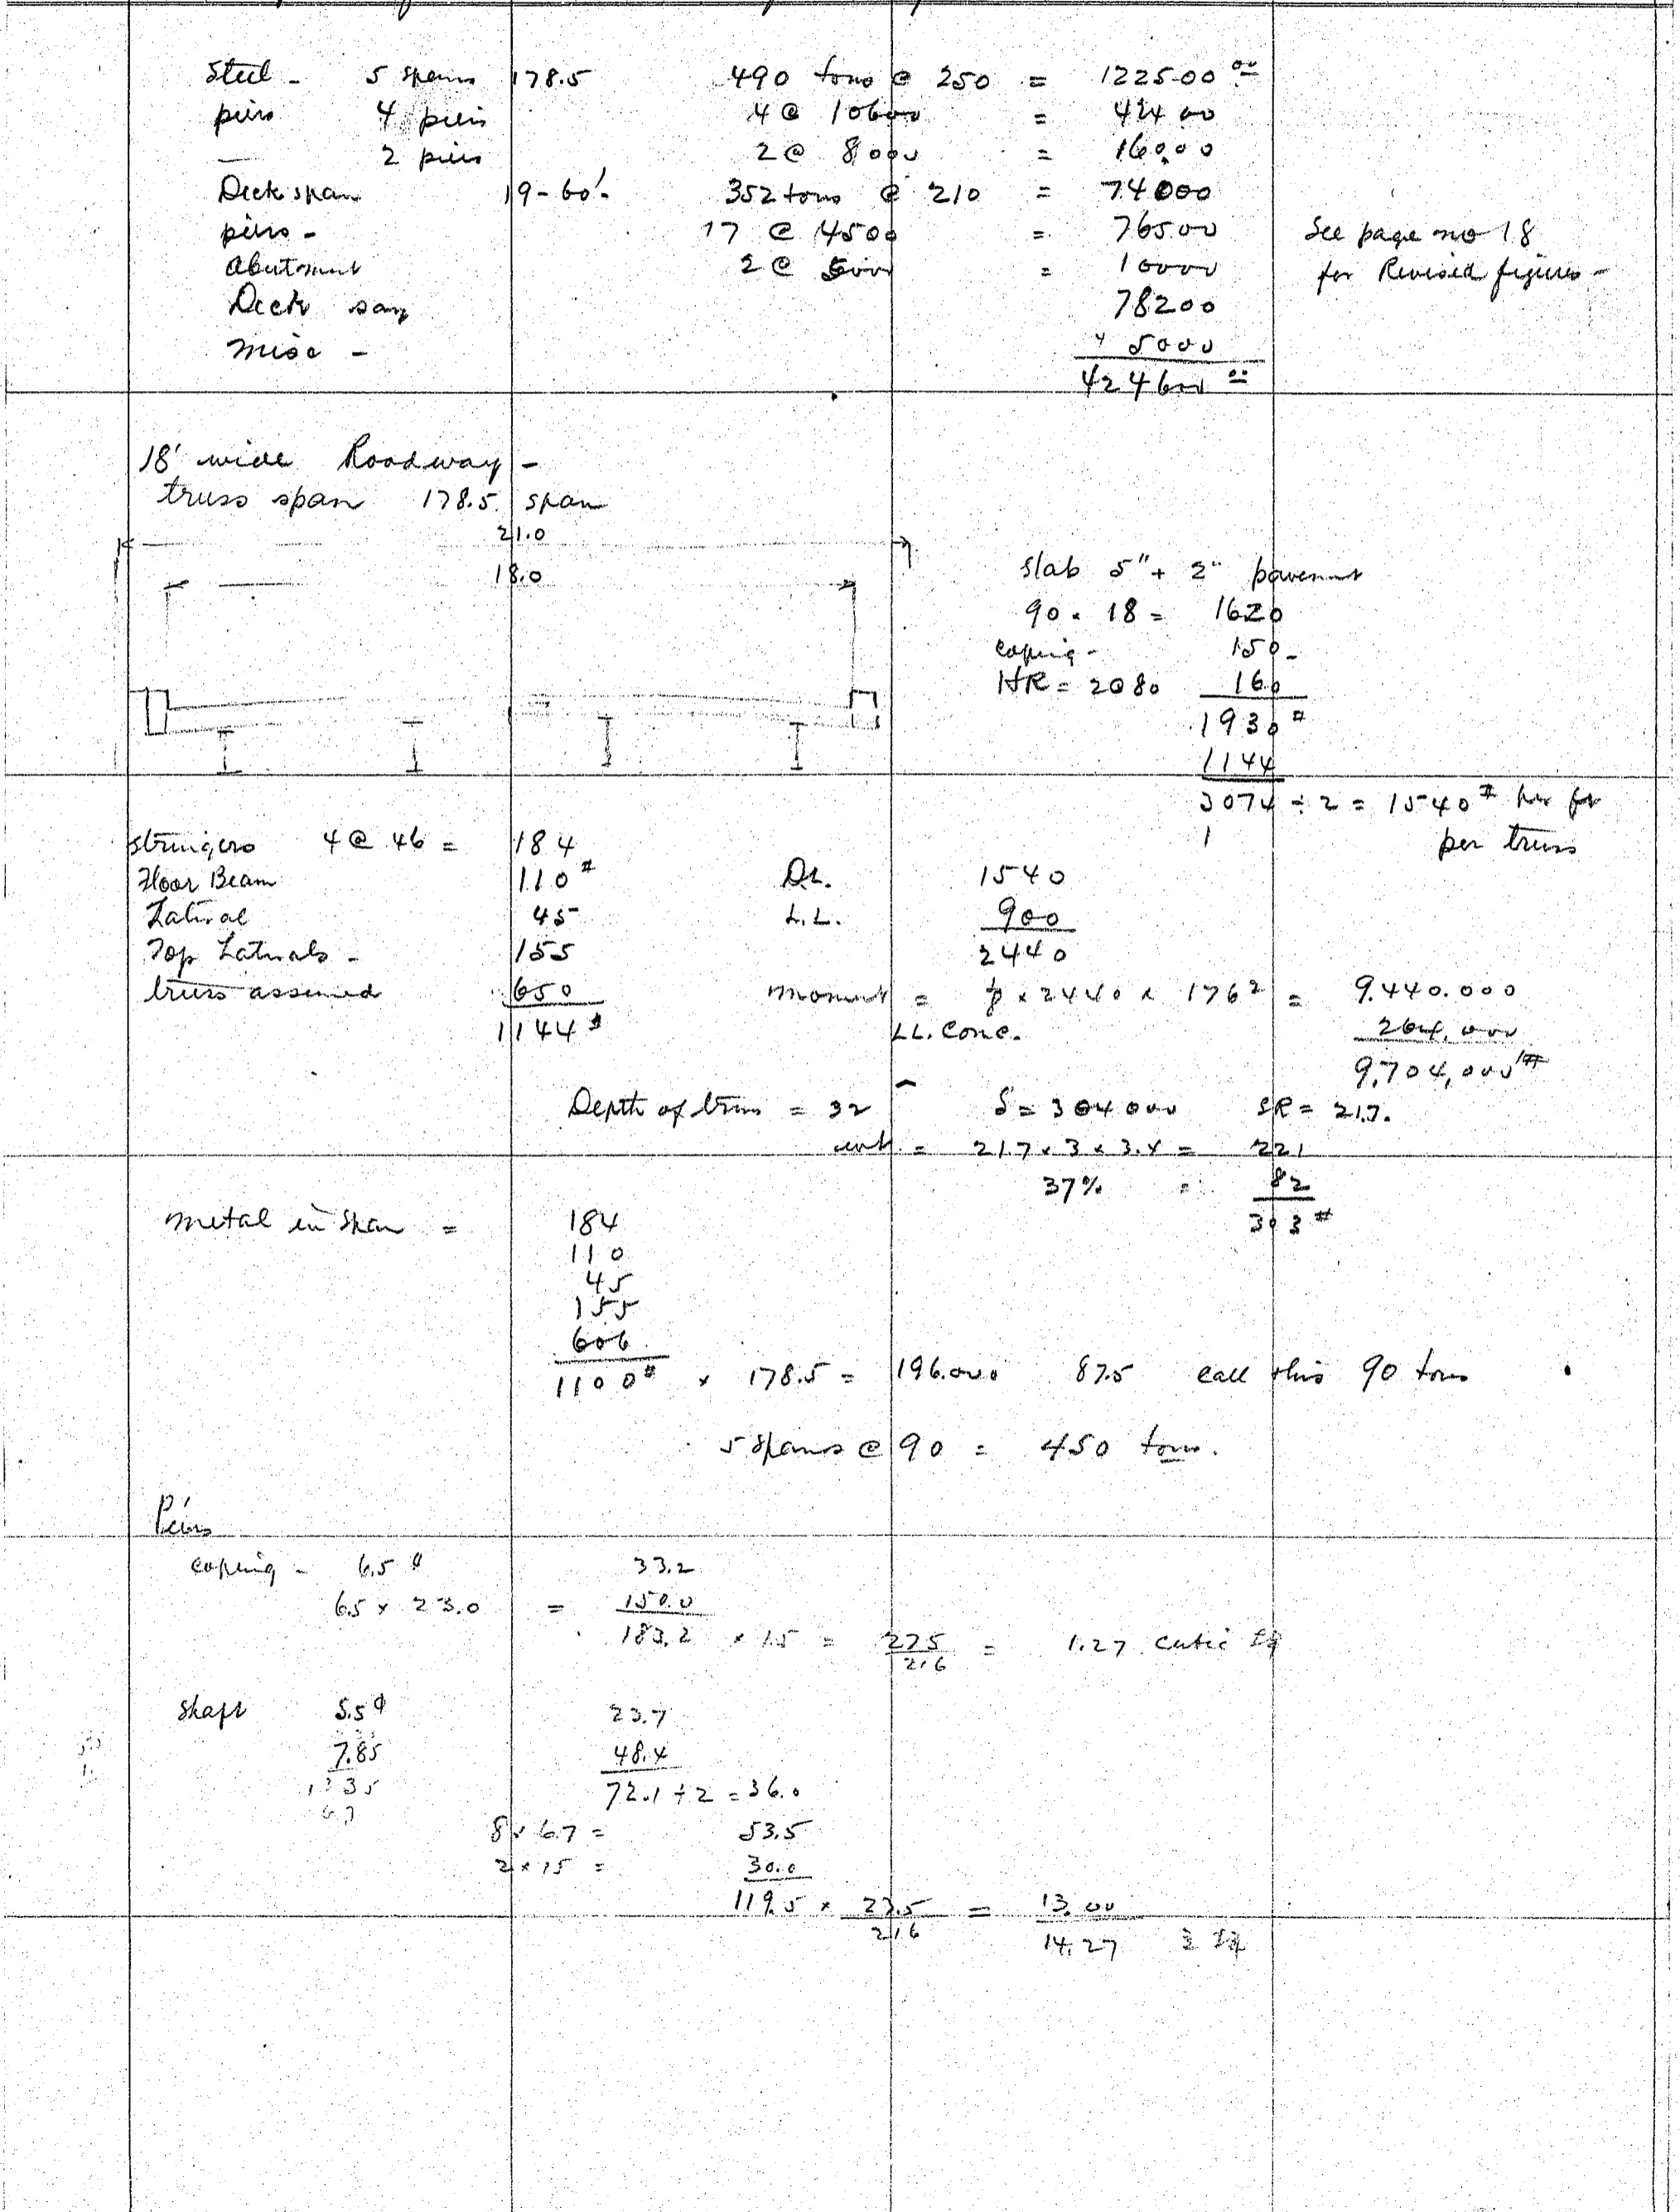 Steel - 5 spans 178.5 490 tons @ 250 = 122500 00
piers 4 piers 4 @ 10600 = 42400
— 2 piers 2 @ 8000 = 16000
Deck span 19-60' 352 tons @ 210 = 74000
piers - 17 @ 4500 = 76500 See page no 18
Abutment 2 @ 5000 = 10000 for Revised figures -
Deck say 78200
Misc - 5000
424600 00
18' wide Roadway -
truss span 178.5 span
21.0
18.0
slab 5" + 2" pavement
90 × 18 = 1620
coping - 150
HR = 2@80 160
1930 #
1144
3074 ÷ 2 = 1540 # per ft
per truss
Stringers 4 @ 46 = 184
Floor Beam 110 # DL. 1540
Lateral 45 L.L. 900
Top Laterals - 155 2440
truss assumed 650 moment = 1/8 × 2440 × 176² = 9.440.000
1144 # LL. Conc. 264,000
9,704,000 '#
Depth of truss = 32 S = 304000 SR = 21.7.
= 21.7 × 3 × 3.4 = 221
37% = 82
303 #
Metal in Span = 184
110
45
155
606
1100 # × 178.5 = 196.000 87.5 call this 90 tons
5 spans @ 90 = 450 tons.
Piers
coping - 6.5 φ 33.2
6.5 × 23.0 = 150.0
183.2 × 1.5 = 275/216 = 1.27
Shaft 5.5 φ 23.7
7.85 48.4
1335 72.1 ÷ 2 = 36.0
6.7
8 × 6.7 = 53.5
2 × 15 = 30.0
119.5 × 23.5/216 = 13.00
14.27